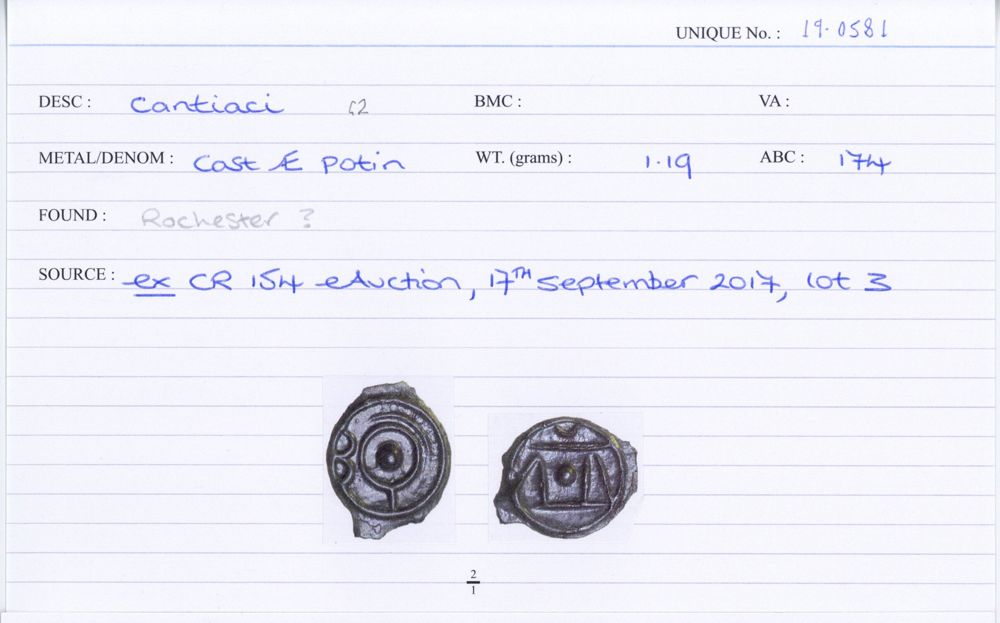 UNIQUE No. : 19-0581
DESC : Cantiaci BMC : VA :
METAL/DENOM : Cast Æ Potin WT. (grams) : 1.19 ABC : 174
FOUND : Rochester ?
SOURCE : ex CR 154 eAuction, 17TH September 2017, lot 3
2
1